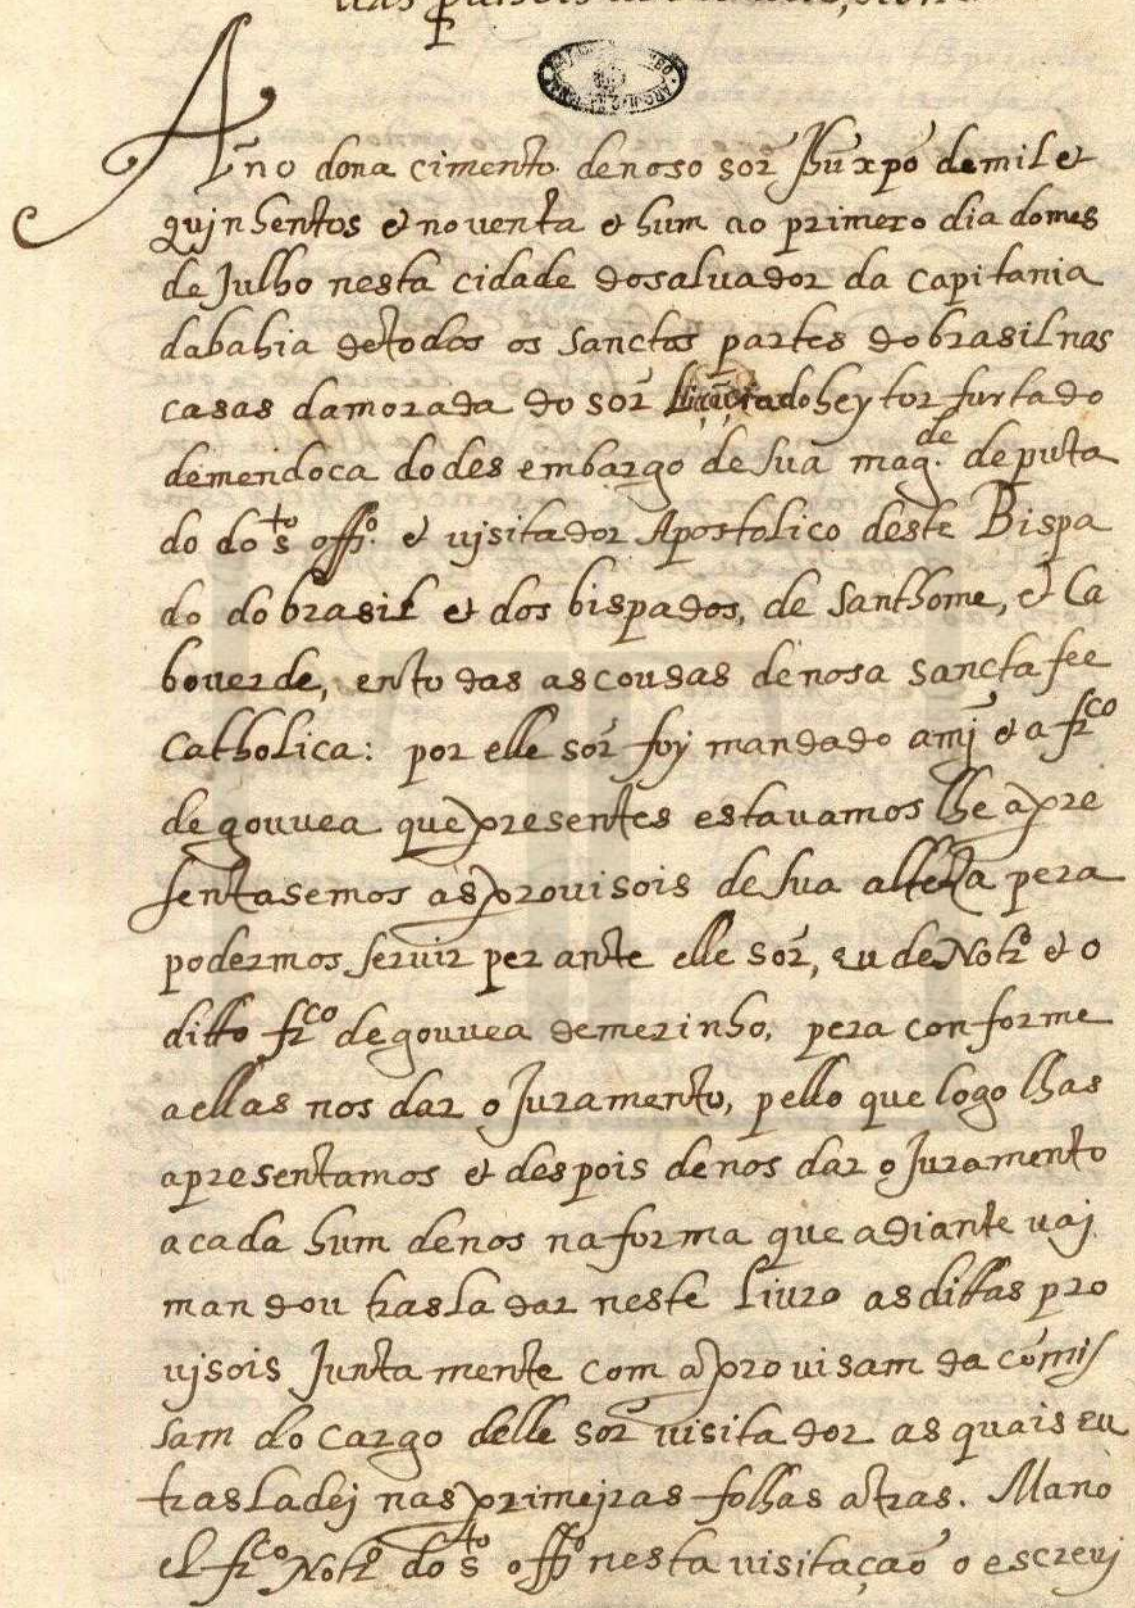 Año dona cimento. denoso sor̃ Jhũ xpõ demil et
qujnhentos et nouenta e hum ao primero dia domes
de Julho nesta cidade dosaluador da capitania
dabahia detodos os sanctos partes dobrasil nas
casas damorada do sor̃ heytor furtado
demendoca dodesembargo desua mag.de deputa
do do s.to offj.o e vjsitador Apostolico deste Bispa
do dobrasil et dos bispados, de santhome, et Ca
bouerde, ento das ascousas denosa sancta fee
Catholica: por elle sor̃ foy mandado amj̃ e a frco
degouuea quepresentes estauamos lhe apre
sentasemos asprouisois desua alteza pera
podermos seruir per ante elle sor̃, eu deNotro et o
ditto frco degouuea demerinho, pera conforme
aellas nos dar oJuramento, pello que logo lhas
apresentamos et despois denos dar oJuramento
acada hum denos naforma que adiante uaj
mandou trasladar neste liuro asdittas pro
ujsois Junta mente com aprouisam da cómis
sam do cargo delle sor̃ uisitador as quais eu
trasladej nasprimejras folhas atras. Mano
el frco Notro do s.to offjo nesta uisitação o escreuj